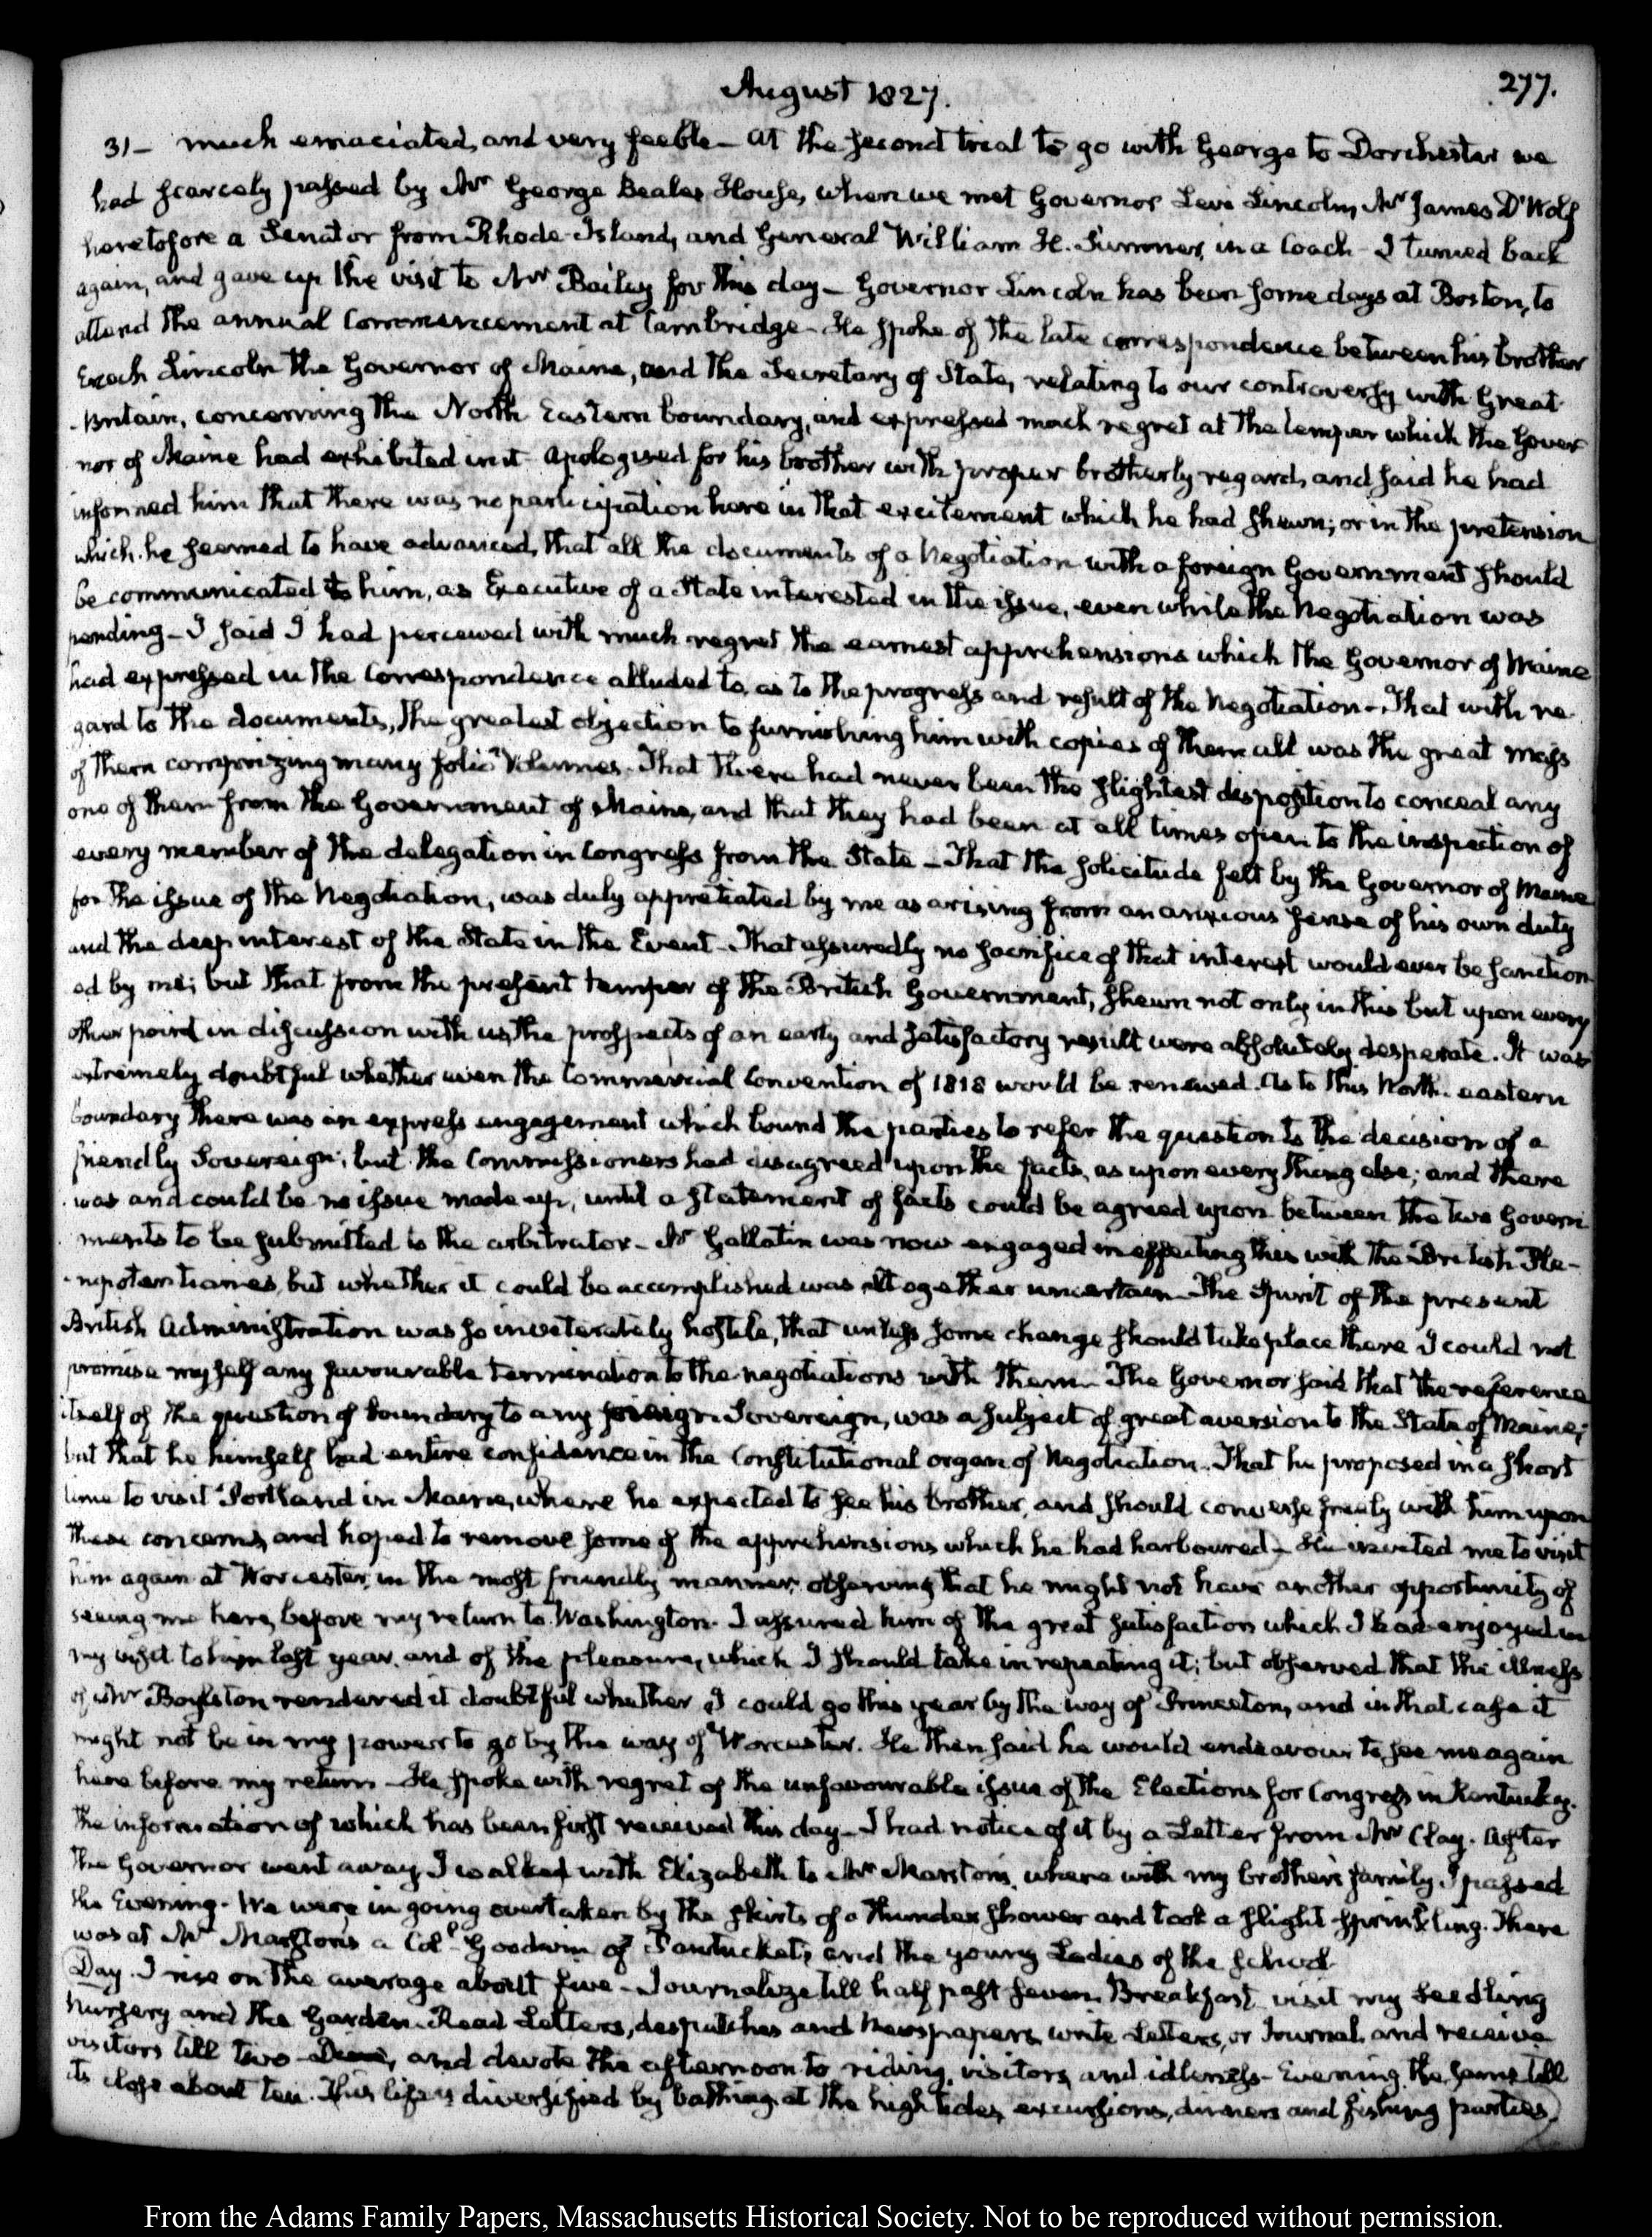 August 1827.
277.
31— much emaciated, and very feeble— at the second trial to go with George to Dorchester we
had scarcely passed by Mr George Beales House, when we met Governor Levi Lincoln, Mr James D'Wolf
heretofore a Senator from Rhode-Island, and General William H. Sumner, in a Coach— I turned back
again, and gave up the visit to Mr Bailey for this day— Governor Lincoln has been some days at Boston, to
attend the annual Commencement at Cambridge— He spoke of the late correspondence between his brother
Enoch Lincoln the Governor of Maine, and the Secretary of State, relating to our controversy with Great
Britain, concerning the North Eastern boundary, and expressed much regret at the temper which the Gover
nor of Maine had exhibited in it— apologized for his brother with proper brotherly regard, and said he had
informed him that there was no participation here in that excitement which he had shewn; or in the pretension
which he seemed to have advanced, that all the documents of a Negotiation with a foreign Government should
be communicated to him, as Executive of a State interested in the issue, even while the Negotiation was
pending— I said I had perceived with much regret the earnest apprehensions which the Governor of Maine
had expressed in the Correspondence alluded to, as to the progress and result of the Negotiation— That with re
gard to the documents, the greatest objection to furnishing him with copies of them all was the great mass
of them comprizing many folio Volumes. That there had never been the slightest disposition to conceal any
one of them from the Government of Maine, and that they had been at all times open to the inspection of
every member of the delegation in Congress from the State— That the solicitude felt by the Governor of Maine
for the issue of the Negotiation, was duly appretiated by me as arising from an anxious sense of his own duty
and the deep interest of the State in the Event— That assuredly no sacrifice of that interest would ever be sanction
ed by me; but that from the present temper of the British Government, shewn not only in this but upon every
other point in discussion with us, the prospects of an early and satisfactory result were absolutely desperate. It was
extremely doubtful whether even the Commercial Convention of 1818 would be renewed. As to this North-eastern
boundary there was an express engagement which bound the parties to refer the question to the decision of a
friendly Sovereign; but the Commissioners had disagreed upon the facts, as upon every thing else; and there
was and could be no issue made up, until a statement of facts could be agreed upon between the two Govern
ments to be submitted to the arbitrator— Mr Gallatin was now engaged in effecting this with the British Ple-
nipotentiaries, but whether it could be accomplished was altogether uncertain— The Spirit of the present
British Administration was so inveterately hostile, that unless some change should take place there I could not
promise myself any favourable termination to the negotiations with them— The Governor said that the reference
itself of the question of boundary to any foreign Sovereign, was a subject of great aversion to the State of Maine;
but that he himself had entire confidence in the Constitutional organ of Negotiation. That he proposed in a short
time to visit Portland in Maine, where he expected to see his brother, and should converse freely with him upon
these concerns, and hoped to remove some of the apprehensions which he had harboured— He invited me to visit
him again at Worcester, in the most friendly manner, observing that he might not have another opportunity of
seeing me here, before my return to Washington. I assured him of the great satisfaction which I had enjoyed in
my visit to him last year, and of the pleasure, which I should take in repeating it; but observed that the illness
of Mr Boylston rendered it doubtful whether I could go this year by the way of Princeton, and in that case it
might not be in my power to go by the way of Worcester. He then said he would endeavour to see me again
here before my return— He spoke with regret of the unfavourable issue of the Elections for Congress in Kentucky.
the information of which has been first received this day— I had notice of it by a Letter from Mr Clay. After
the Governor went away I walked with Elizabeth to Mr Marston's, where with my brother's family I passed
the Evening. We were in going overtaken by the skirts of a thunder shower and took a slight sprinkling. There
was at Mr Marston's a Coll. Goodwin of Pawtucket, and the young Ladies of the school.
Day. I rise on the average about five— Journalize till half past seven. Breakfast visit my seedling
Nursery and the Garden. Read Letters, despatches and Newspapers, write Letters, or Journal, and receive
visitors till two— Dine, and devote the afternoon to riding, visitors, and idleness— Evening the same till
its close about ten. This life is diversified by bathing at the high tides, excursions, dinners and fishing parties.
From the Adams Family Papers, Massachusetts Historical Society. Not to be reproduced without permission.